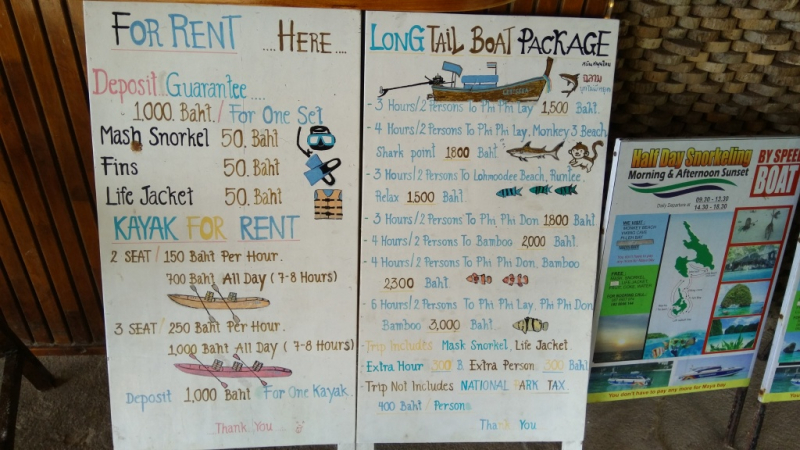 FOR RENT ....HERE....
Deposit Guarantee....
1,000. Baht./For One Set
Mash Snorkel 50. Baht
Fins 50. Baht
Life Jacket 50. Baht
KAYAK FOR RENT
2 SEAT / 150 Baht Per Hour.
700 Baht All Day (7-8 Hours)
3 SEAT / 250 Baht Per Hour.
1,000 Baht All Day (7-8 Hours)
Deposit 1,000 Baht For One Kayak
Thank You
LONG TAIL BOAT PACKAGE
ฉลาม
- 3 Hours/2 Persons To Phi Phi Lay 1,500 Baht.
- 4 Hours/2 Persons To Phi Phi lay, Monkey 3 Beach
Shark point 1800 Baht
- 3 Hours/2 Persons To Lohmoodee Beach, Runtee.
Relax 1,500 Baht.
- 3 Hours/2 Persons To Phi Phi Don 1800 Baht
- 4 Hours/2 Persons To Bamboo 2,000 Baht.
- 4 Hours/2 Persons To Phi Phi Don, Bamboo
2300 Baht.
- 6 Hours/2 Persons To Phi Phi Lay, Phi Phi Don
Bamboo 3,000 Baht.
- Trip Includes Mask Snorkel, Life Jacket.
Extra Hour 300 B. Extra Person 300 Baht
- Trip Not Includes NATIONAL PARK TAX
400 Baht / Person
Thank You
Half Day Snorkeling
Morning & Afternoon Sunset
BY SPEE
BOAT
Daily Departure at
09.30 - 13.30
14.30 - 18.30
You don't have to pay any more for Maya Bay